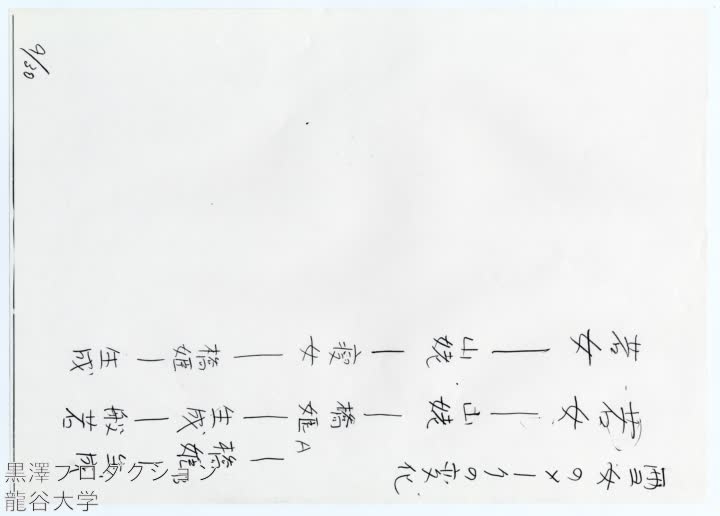 女のメークの変化
若女—山姥—橋姫A—生成—般若
—橋姫B—生成
若女—山姥—痩女—橋姫—生成
9/30
黒澤プロダクション
龍谷大学